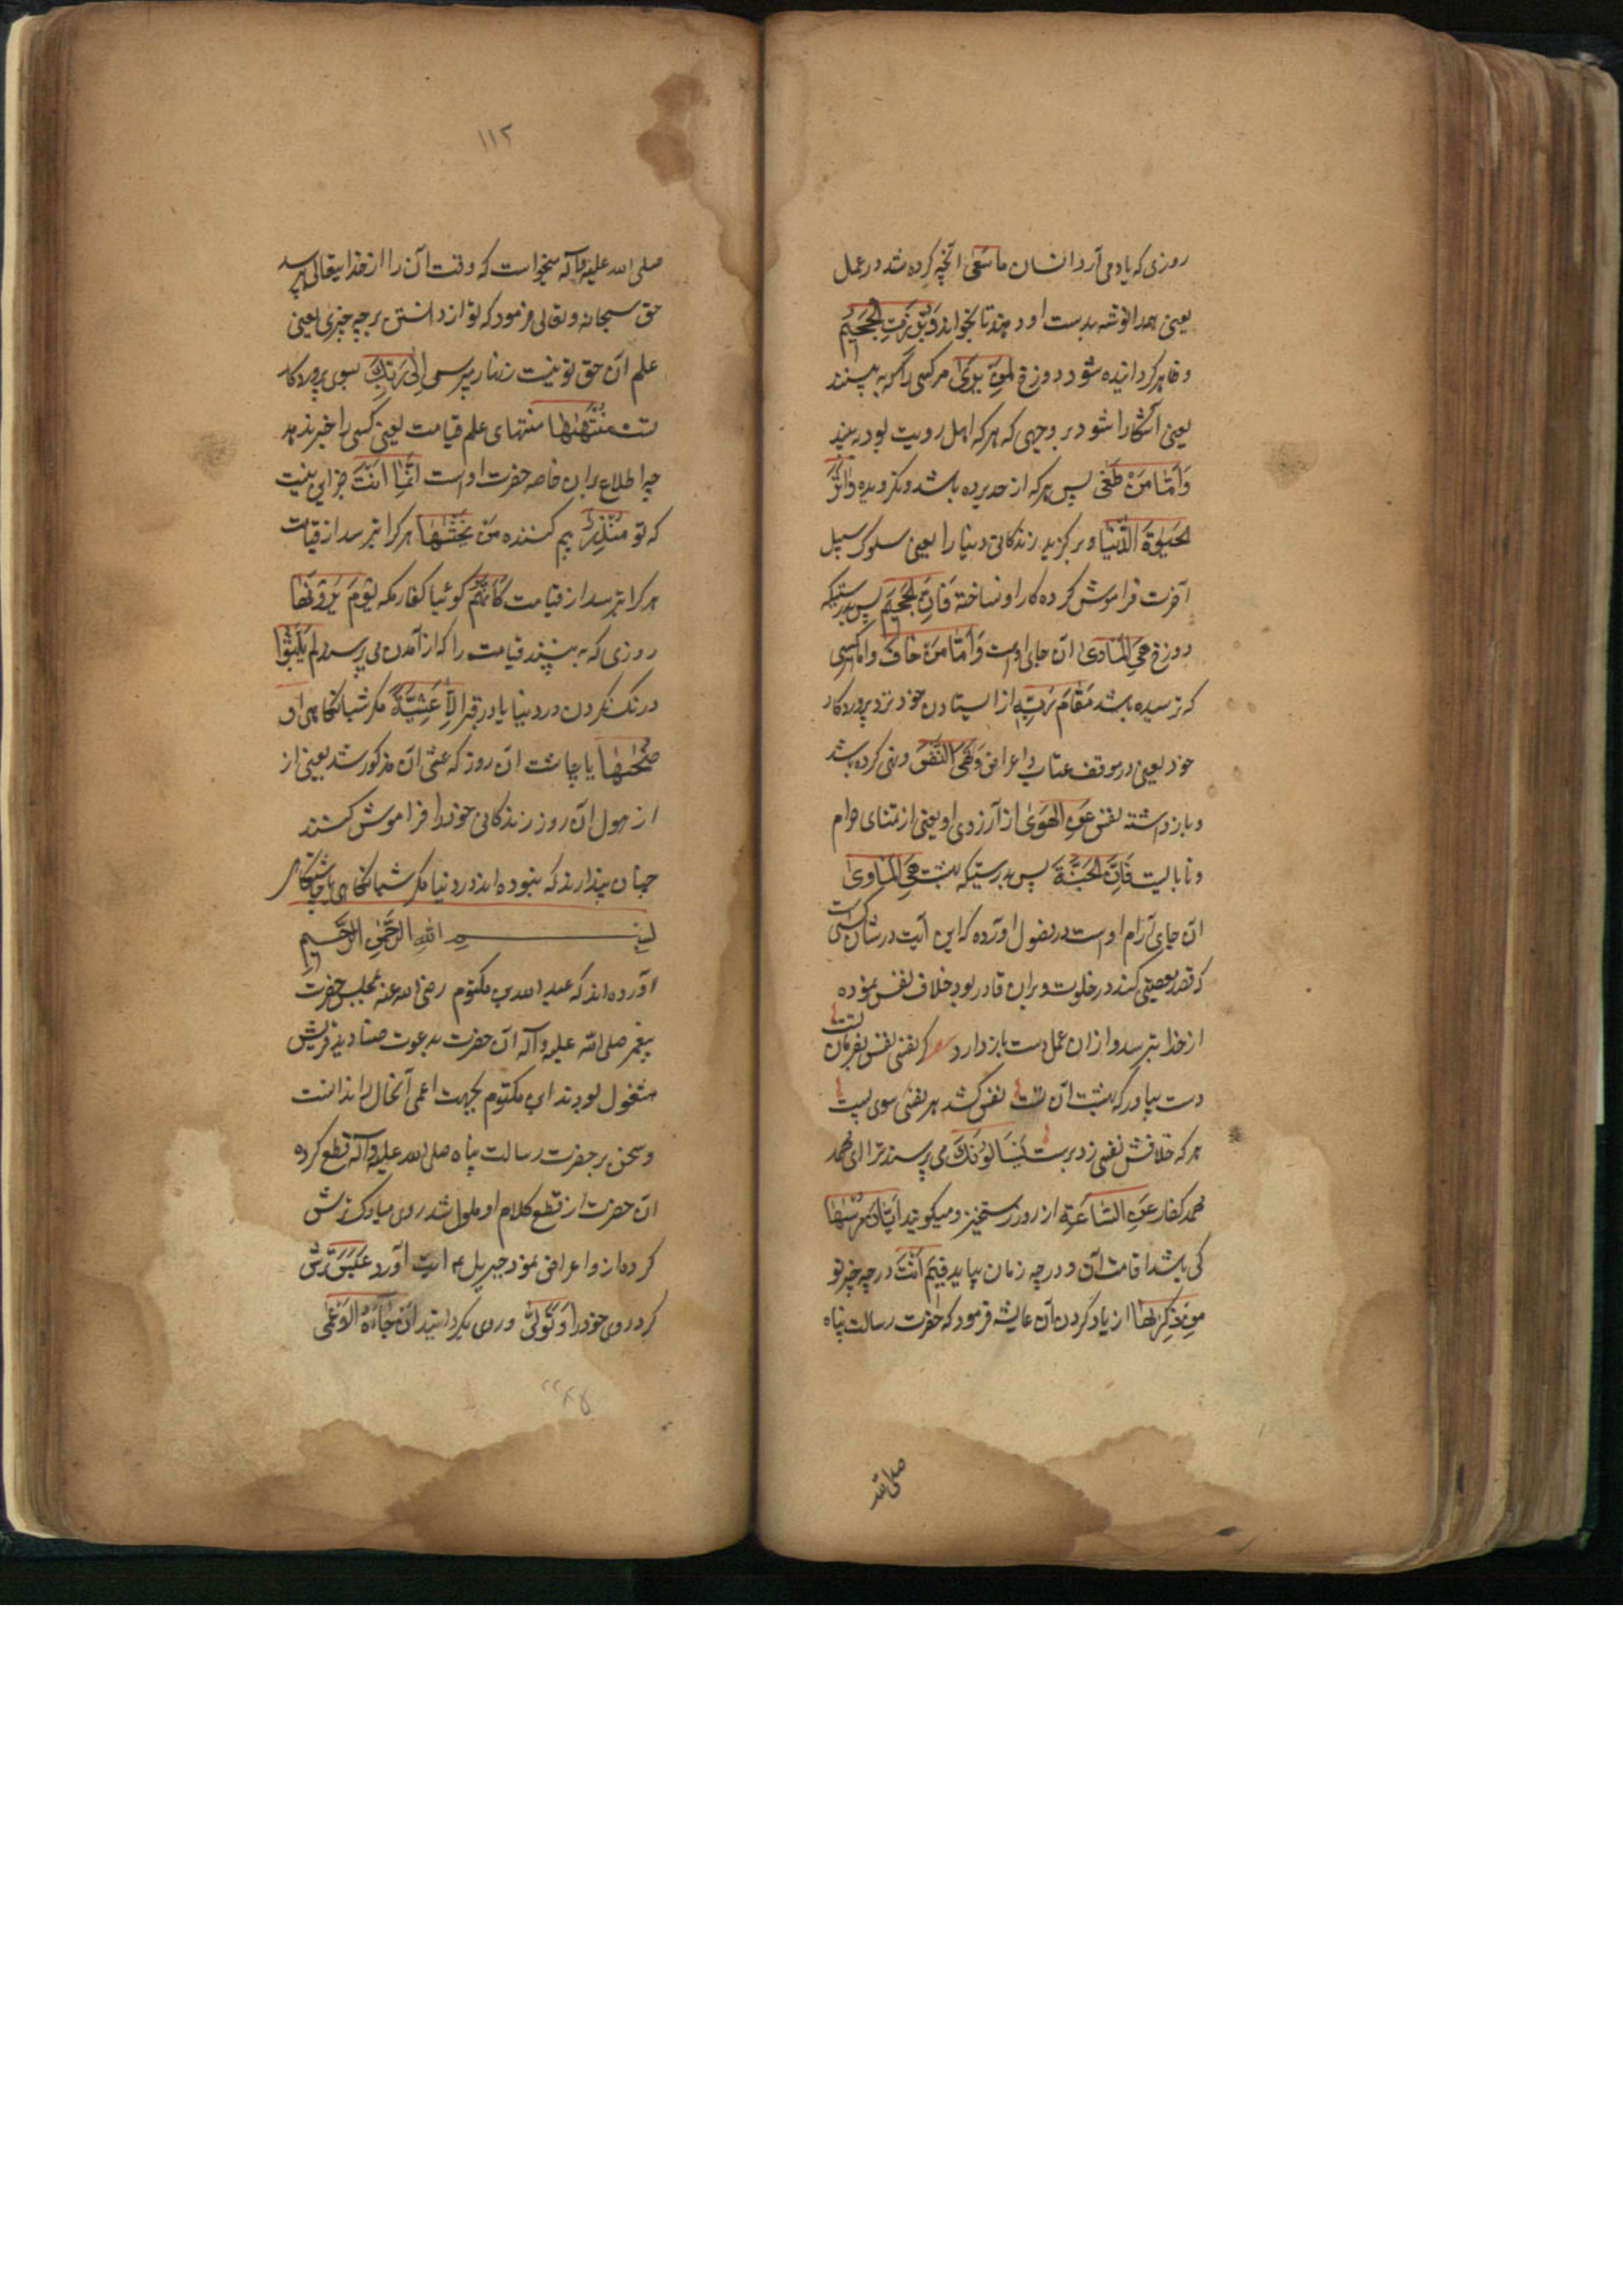 روزی که یاد می آرد انسان ما سَعَی آنچه کرده شد در عمل
یعنی همه را نوشته بدست او دهند تا بخواند وَبُرِّزَتِ الْجَحِيمُ
و ظاهر کردانیده شود دوزخ لِمَن یَرَی مر کسی را که به بینند
یعنی آشکارا شود بر وجهی که هر که اهل رویت بود به بیند
وَاَمَّا مَنْ طَغَی پس هر که از حد برده باشد و نکرویده وَاٰثَرَ
الحَیٰوةَ الدُّنْیَا و برکزید زندکانی دنیا را یعنی سلوک سبیل
آخرت فراموش کرده کار او نساخته فَاِنَّ الْجَحِیمَ پس بدرستیکه
دوزخ هِیَ الْمَأوَی ان جای اوست وَاَمَّا مَنْ خَافَ واما کسی
که ترسیده باشد مَقَامَ رَبِّهِ از ایستادن خود نزد پروردکار
خود یعنی در موقف عتاب و اعراض وَنَهَی النَّفْسَ و نهی کرده باشد
و باز داشته نفس عَنِ الْهَوَیٰ از آرزوی او یعنی از تمنای حرام
و نابایست فَاِنَّ الْجَنَّةَ پس بدرستیکه بهشت هِیَ الْمَأویٰ
ان جای آرام اوست در فصول آورده که این آیت در شان کسی است
که قصد معصیتی کند در خلوت و بران قادر بود خلاف نفس نموده
از خدا بترسد و ازان عمل دست باز دارد شعر کر نفسی نفس بفرمان تست
دست بیاور که بهشت آن تست نفس کشد هر نفسی سوی پست
هر که خلافش نفسی زد برست یَسْأَلُونَكَ می پرسند ترا ای محمد
محمد کفار عَنِ السَّاعَةِ از روز رستخیز و میکویند اَیَّانَ مُرْسٰهَا
کی باشد اقامت آن و در چه زمان بیاید فِیمَ اَنْتَ در چه چیز تو
مِن ذِکْرٰىهَا از یاد کردن آن عایشه فرمود که حضرت رسالت پناه
صلی الله
١١٢
صلی الله علیه وآله میخواست که وقت آن را از خدایتعالی پرسد
حق سبحانه و تعالی فرمود که تو از دانستن بر چه چیزی یعنی
علم ان حق تو نیست زنهار مپرس اِلٰی رَبِّكَ بسوی پروردکار
تست مُنْتَهٰهَا منتهای علم قیامت یعنی کسی را خبر ندهد
چه اطلاع بران خاصه حضرت اوست اِنَّمَا اَنْتَ جز این نیست
که تو مُنْذِرُ بیم کننده مَنْ یَخْشٰهَا هر کرا بترسد از قیامت
هر کرا بترسد از قیامت کَاَنَّهُمْ کوئیا کفار مکه یَوْمَ یَرَوْنَهَا
روزی که به بینند قیامت را که از آمدن می پرسند لَمْ یَلْبَثُوا
درنک نکردن در دنیا یا در قبر اِلَّا عَشِیَّةً مکر شبانکاهی اَو
ضُحٰهَا یا چاشت ان روز که عشی ان مذکور شد یعنی از
از هول ان روز زندکانی خود را فراموش کنند
چنان پندارند که نبوده اند در دنیا مکر شبانکاهی یا چاشتکاهی
بسم الله الرحمن الرحیم
آورده اند که عبد الله بن مکتوم رضی الله عنه بمجلس حضرت
پیغمبر صلی الله علیه وآله آن حضرت بدعوت صنادید قریش
مشغول بودند ابن مکتوم بجهت اعمی آنحال را ندانست
و سخن بر حضرت رسالت پناه صلی الله علیه وآله قطع کرده
ان حضرت از قطع کلام او ملول شد روی مبارک ترش
کرده ازو اعراض نمود جبریل ع م ایت آورد عَبَسَ ترش
کرد روی خود را وَتَوَلّٰی و روی بکردانید اَنْ جَآءَهُ الْاَعْمٰی